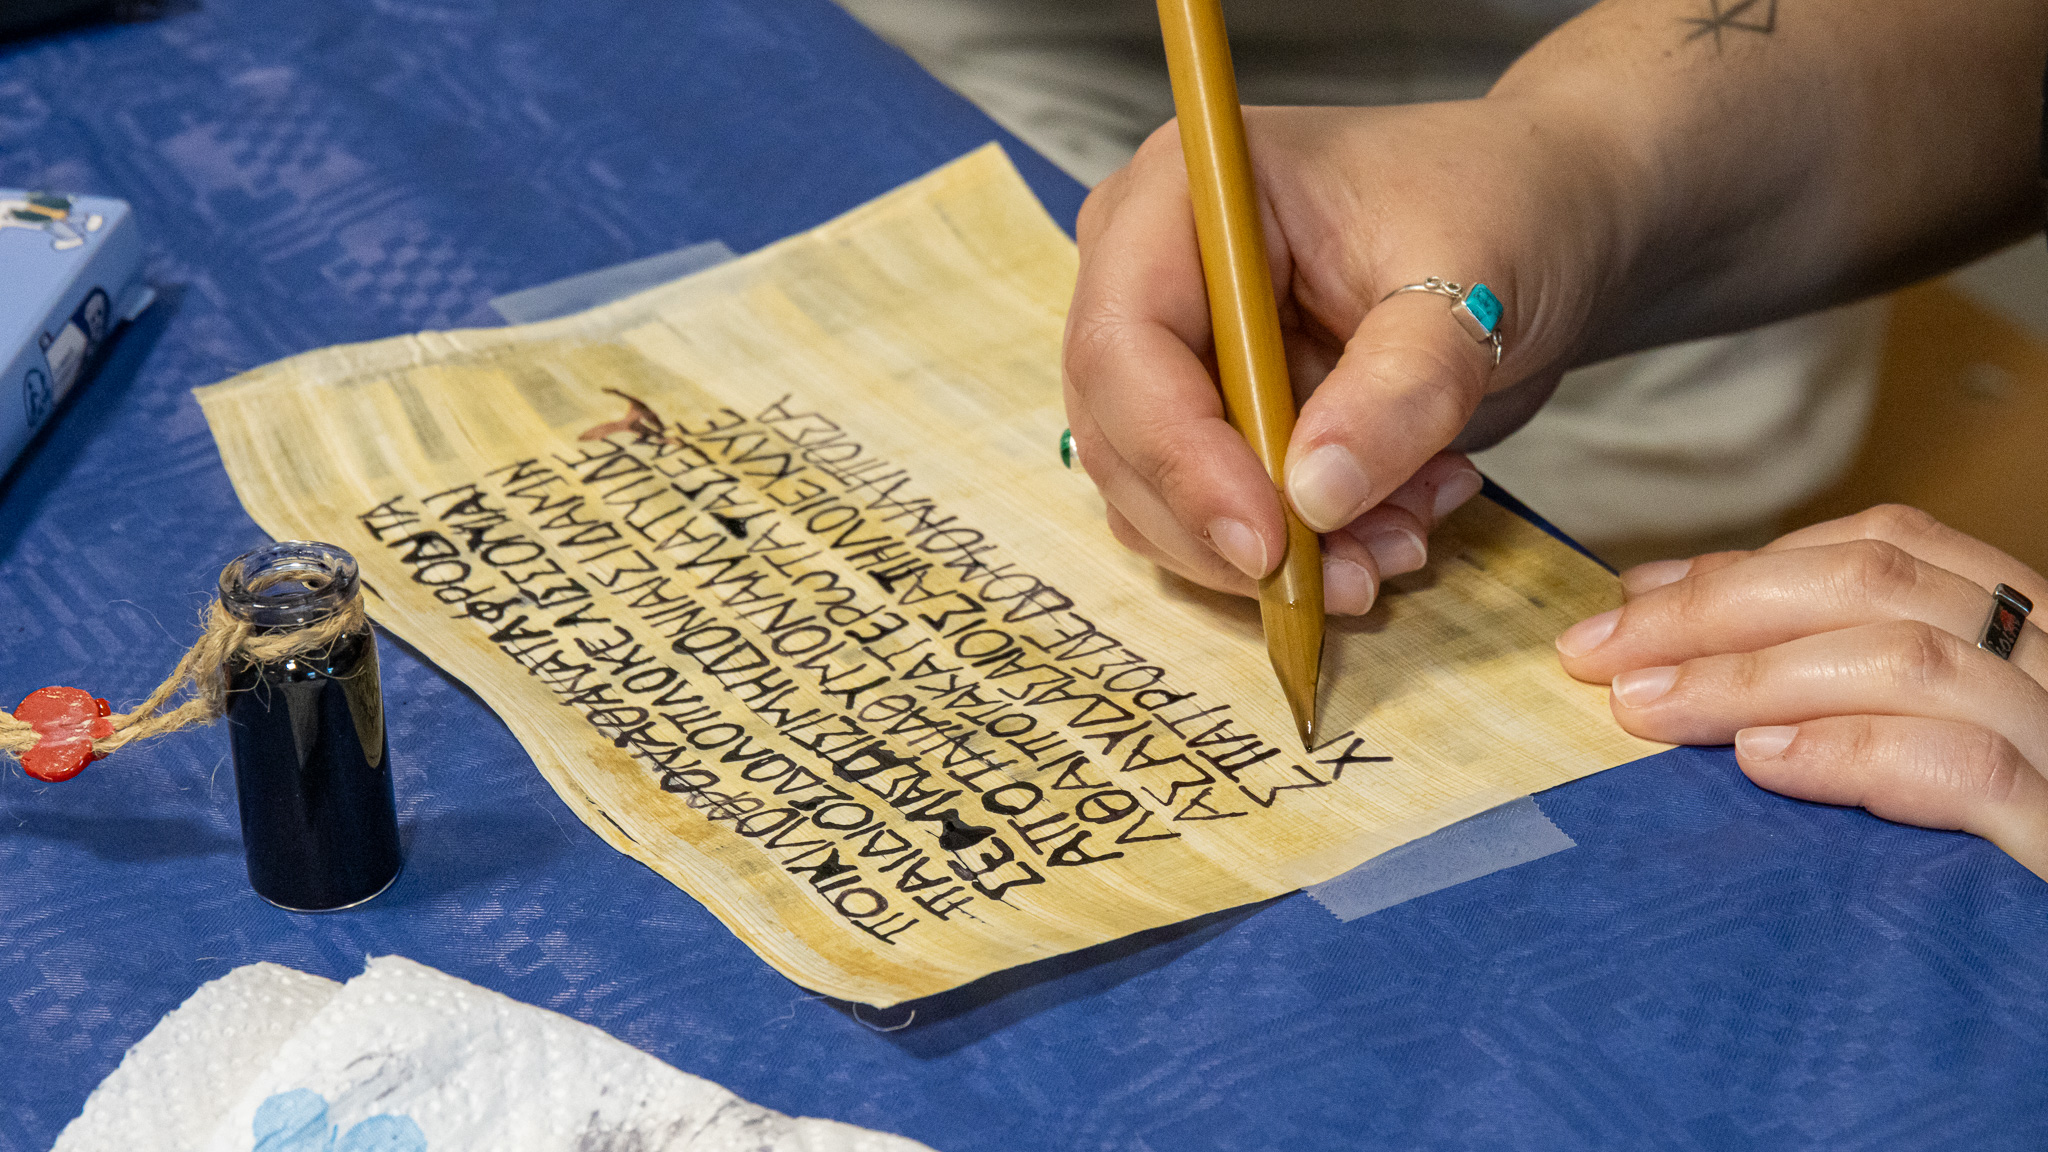 ΠΟΙΚΙΛΟΘΡΟΝΑΘΑΝΑΤΑΦΡΟΔΙΤΑ
ΠΑΙΔΙΟΣΔΟΛΟΠΛΟΚΕΛΙΣΣΟΜΑΙ
ΣΕΜΜΑΣΑΙΣΙΜΗΔΟΝΙΑΙΣΙΔΑΜΝ
ΑΠΟΤΝΙΑΘΥΜΟΝΑΛΛΑΤΥΙΔΕ
ΛΘΑΙΠΟΤΑΚΑΤΕΡΩΤΑΤΑΣΕΜ
ΑΣΑΥΔΑΣΑΙΟΙΣΑΠΗΛΟΙΕΚΛΥΕ
ΣΠΑΤΡΟΣΔΕΔΟΜΟΝΛΙΠΟΙΣΑ
ΧΙ